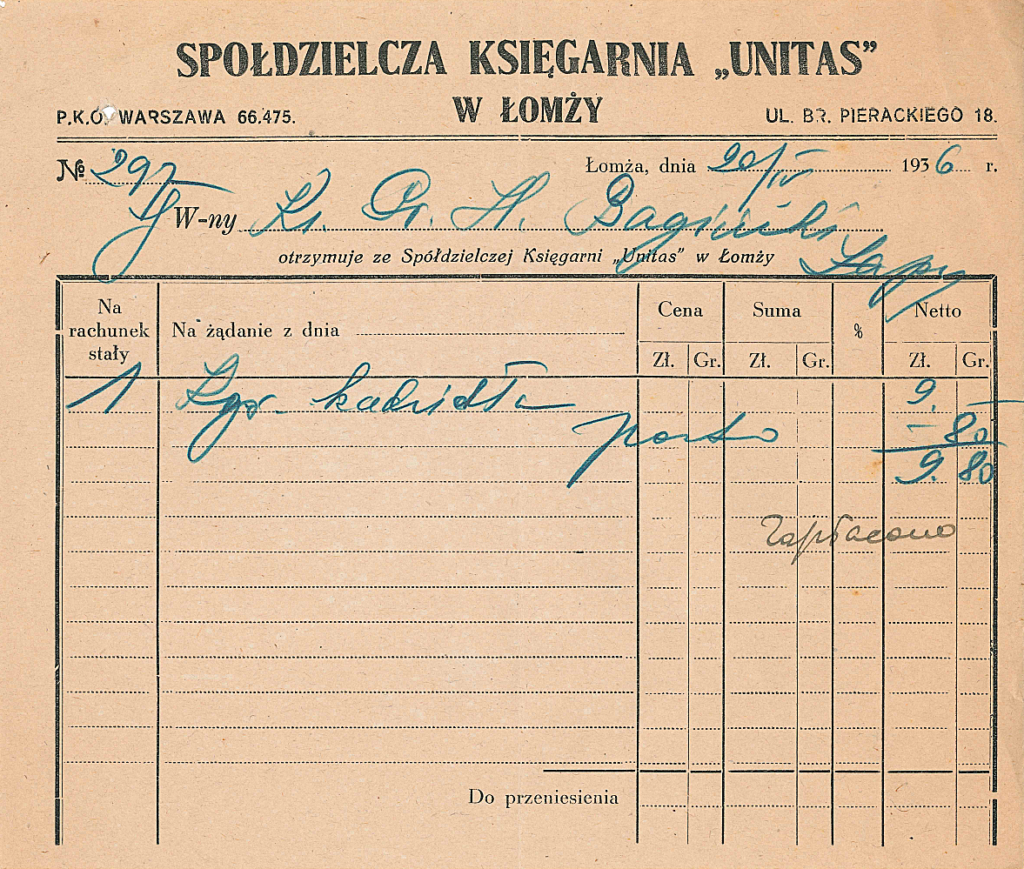 SPOŁDZIELCZA KSIĘGARNIA „UNITAS”
P.K.O. WARSZAWA 66.475. W ŁOMŻY UL. BR. PIERACKIEGO 18.
№ 297 Łomża, dnia 20/IV 1936 r.
W-ny Ks. Pr. H. Bagiński
otrzymuje ze Spółdzielczej Księgarni „Unitas” w Łomży Łapy
Na rachunek stały Na żądanie z dnia Cena Zł. Gr. Suma Zł. Gr. % Netto Zł. Gr.
1 Kgr. kadzidła 9. –
porto – 80
9. 80
Zapłacono
Do przeniesienia